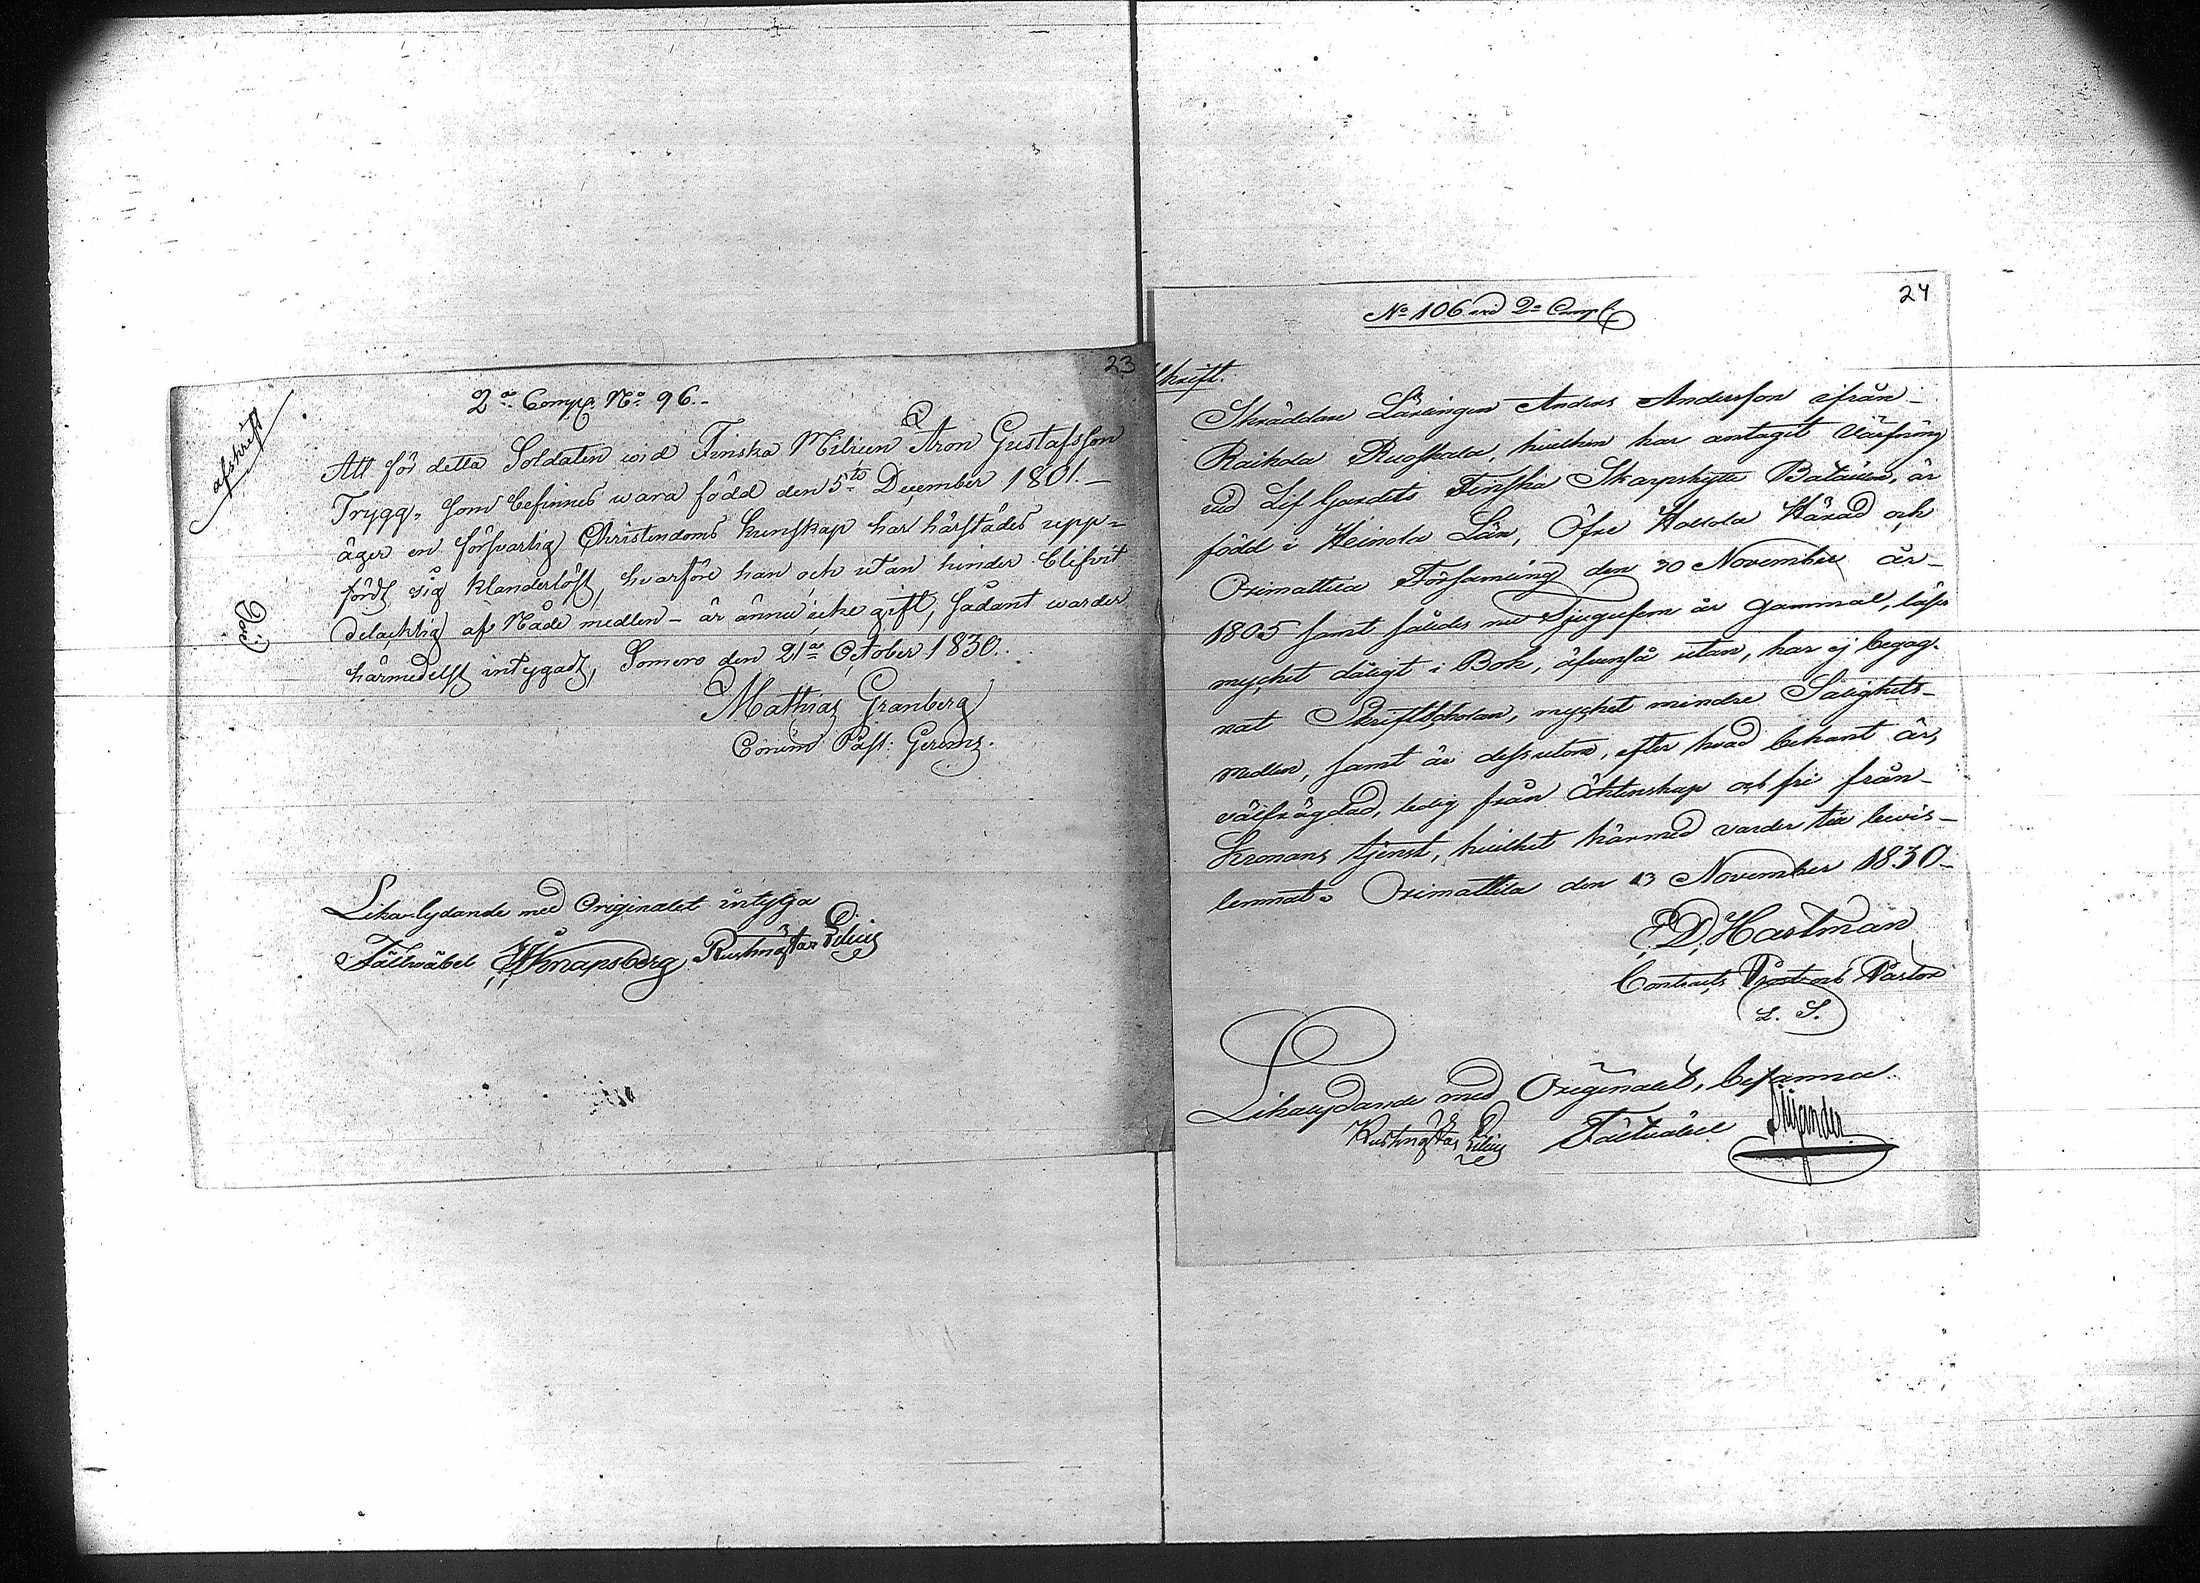 23
2:a Comp. No: 96.-
afskrift
Att för detta Soldaten wid Finska Milicen Aron Gustafsson
Trygg, som befinnes wara född den 5:te December 1801. -
äger en försvarlig Christendoms kunskap har härstädes upp=
fördt sig klanderlöst, hvarföre han och utan hinder blifvit
delacktig af Nåde medlen - är ännu icke gift, sådant warder
härmedelst intygadt, Somero den 21:a October 1830.
Mathias Granberg
Comm: Past: Gerens.
Lika lydande med Originalet intyga
Fältwäbel Knapsberg. Rustmästar Lilius
24
No 106 vid 2:a Comp
skrift.
Skräddare Lärlingen Anders Andersson ifrån
Raikala Ruoskala, hvilken har antagit värfning
vid Lif Gardets Finska Skarpskytte Bataillon, är
född i Heinola Län, Öfre Hollola Härad och
Orimattila Församling den 30 November år
1805 samt således nu Tjugufem år gammal, läser
mycket dåligt i Bok, äfvenså utan, har ej begag-
nat Skriftskolan, mycket mindre Salighets-
medlen, samt är dessutom, efter hvad bekant är,
välfrägdad, ledig från Äktenskap och fri från
Kronans tjenst, hvilket härmed varder till bevis
lemnat. Orimattila den 13 November 1830
E. D. Hartman
Contracts Prost och Pastor
L. S.
Likalydande med Originalet, befanna.
Rustmästar Lilius Fältväbel